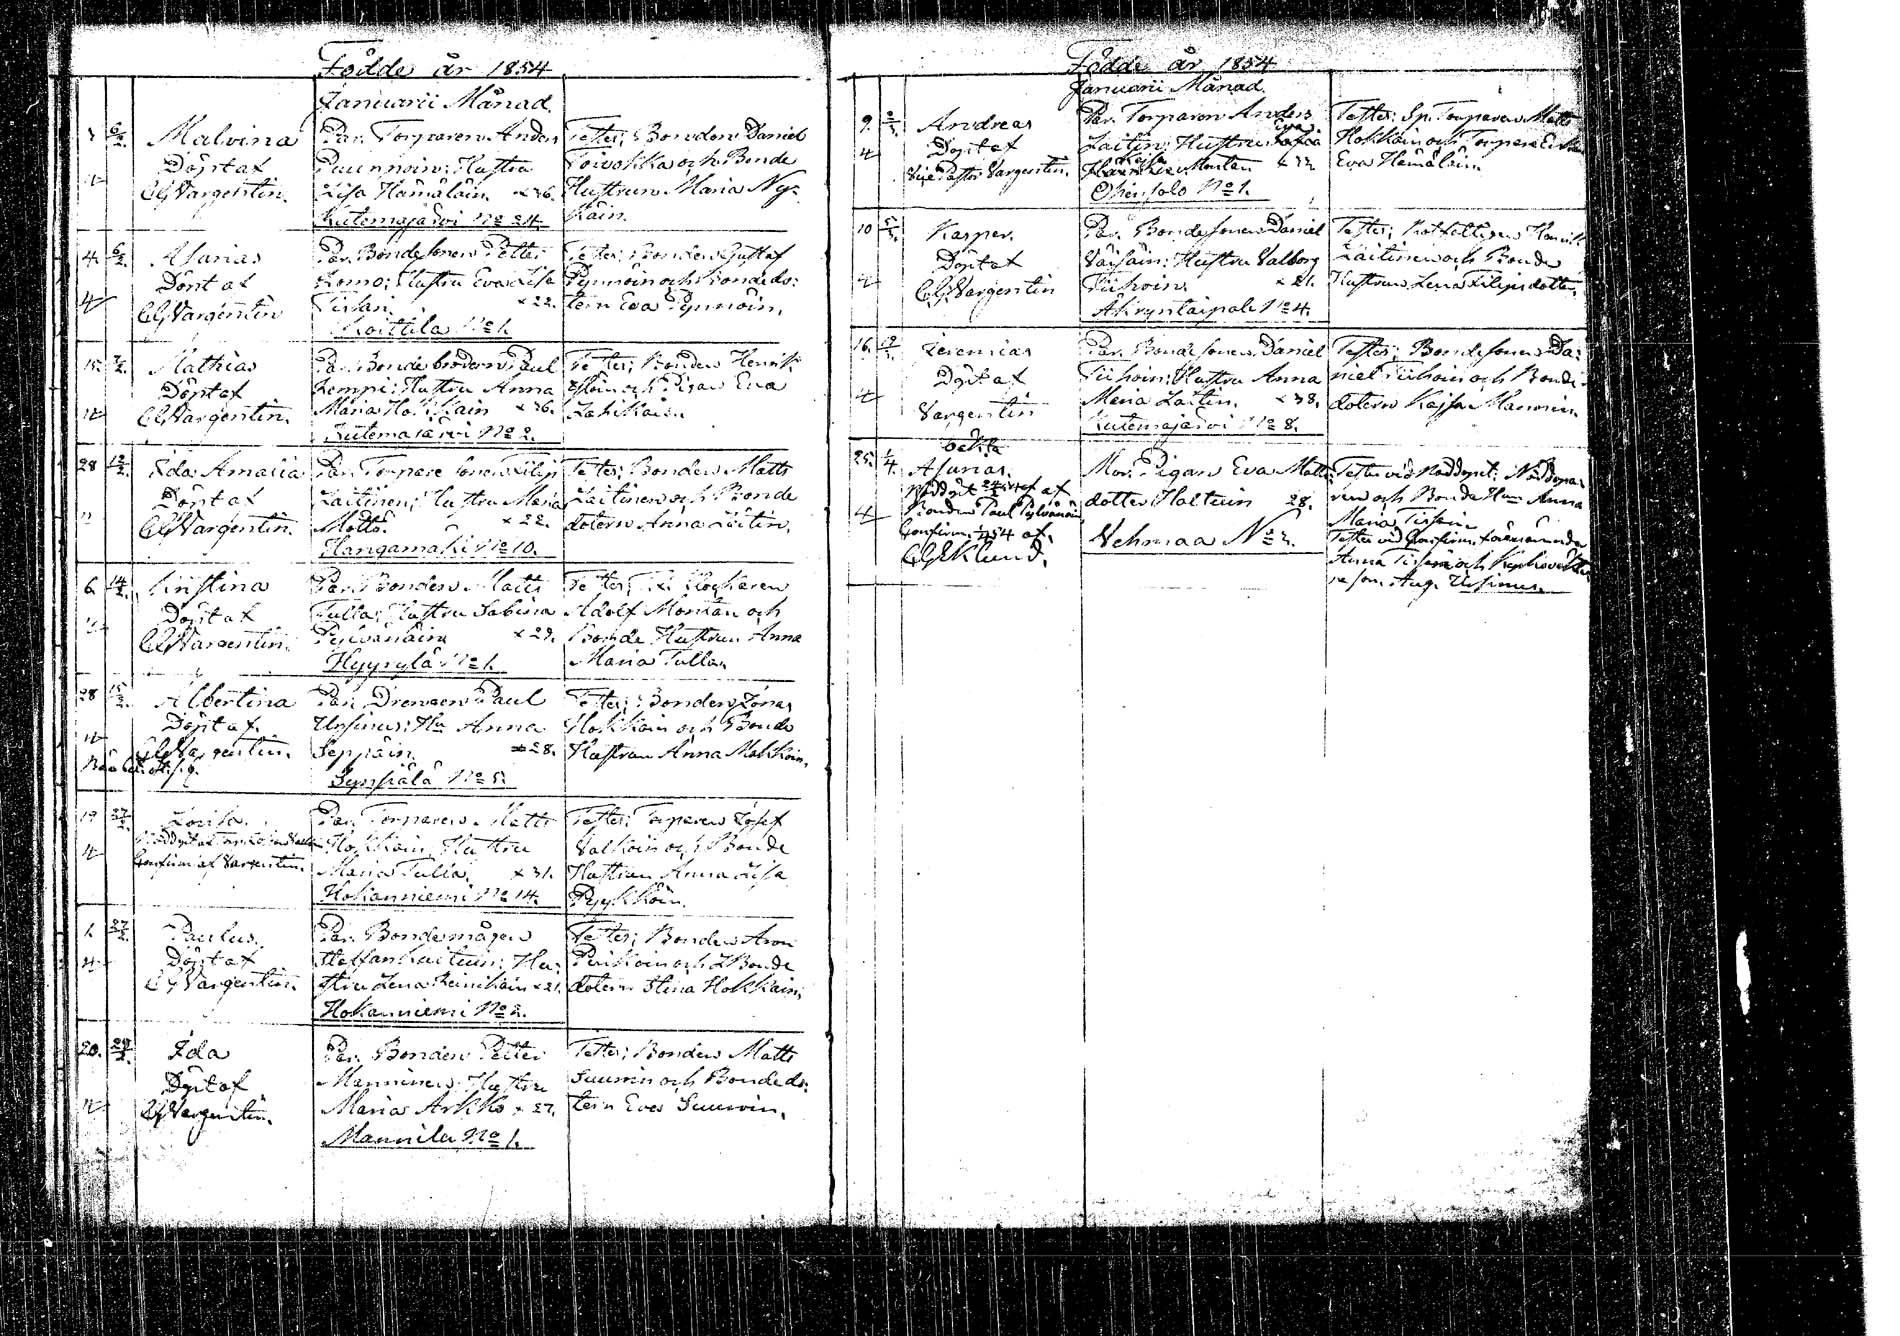 Födde år 1854
Januarii Månad.
6/2. Malvina
Döpt af
C.G. Vargentin.
Par. Torparen Anders
Puunnoin; Hustru
Lisa Hämäläin. x 36.
Kutemajärvi No 24.
Testes; Bonden Daniel
Toivokka och Bonde
Hustrun Maria Ny=
käin.
4. 6/2. Asarias
Döpt af
C.G. Vargentin
Par. Bondesonen Petter
Lomo; Hustru Eva Lisa
x 22.
No 1.
Testes; Bonden Gustaf
Pynnöin och Bondedo:
tern Eva Pynnöin.
15. 7/2. Mathias
Döpt af
C.G. Vargentin.
Par. Bondebrodern Paul
Kemppi; Hustru Anna
Maria Hokkain x 36.
Kutemajärvi No 2.
Testes; Bonden Henrik
och Pigan Eva
28 12/2. Ida Amalia
Döpt af
C.G. Vargentin.
Par. Torpare sonen Filip
Laitinen; Hustru Maria
Mottö. x 22.
Kangamäki No 10.
Testes; Bonden Matts
Laitinen och Bonde
dotern Anna Laitin.
6. 14/2. Cristina
Döpt af
C.G. Vargentin.
Par. Bonden Matts
Tulla; Hustru Sabina
Pylvänäin x 29.
Hyyrylä No 1.
Testes; Klockaren
Adolf Montän och
Bonde Hustrun Anna
Maria Tulla.
28 15/2. Albertina
Döpt af.
C.G. Vargentin.
Par. Drengen Paul
Ursinus; Hu Anna
Seppäin. x 28.
Synsiälä No 5.
Testes; Bonden Jonas
Hokkain och Bonde
Hustrun Anna Hokkain.
19 27/2. Lovisa.
Confirm. af Vargentin.
Par. Torparen Matts
Hokkain, Hustru
Maria Tulla. x 31.
Hokanniemi No 14.
Testes; Torparen Josef
Valkoin och Bonde
Hustrun Anna Lisa
Pyykköin.
1. 27/2. Paulus.
Döpt af
C.G. Vargentin.
Par. Bondemågen
Staffan Laitinen; Hu=
stru Lena Reinikain x 21.
Hokanniemi No 2.
Testes; Bonden Aron
Puikoin och Bonde
dotern Stina Hokkain.
20. 28/2. Ida
Döpt af
C.G. Vargentin.
Par. Bonden Petter
Manninen; Hustru
Maria Arkko x 27.
Mannila No 1.
Testes; Bonden Matts
Suuroin och Bondedo:
tern Eva Suuroin.
Födde år 1854
Januarii Månad.
9. 2/3. Andreas
Döpt af
Vice Pastor Vargentin.
Par. Torparen Anders
Laitin; Hustru
Kaisa Montän x 32
Ohensalo No 1.
Testes: Sp. Torparen Matts
Hokkain och Torpare Enkan
Eva Hämäläin.
10 5/3. Kasper.
Döpt af
C.G. Vargentin
Par. Bondesonen Daniel
Väisäin; Hustru Valborg
Tiihoin. x 21.
Akryntaipale No 4.
Testes; Rotfattigen Henrik
Laitinen och Bonde
Hustrun Lena Filipsdotter.
16. 19/3. Jeremias
Döpt af
Vargentin
Par. Bondesonen Daniel
Tiihoin; Hustru Anna
Maria Laitin. x 38.
Kutemajärvi No 8.
Testes; Bondesonen Da:
niel Tiihoin och Bonde
dotern Kajsa Mannin.
25. 1/4. oäkta
Asarias.
Nöddöpt af
Bonden Paul Pylvänäin
Confirm. 1/4 54 af.
C.G. Eklund.
Mor. Pigan Eva Matts
dotter Haltuin 28.
Vehmaa No 2.
Testes vid Nöddopet: Nöddopa=
ren och Bonde Hun Anna
Maria Tissein
Testes vid Confirm. förenämnda
Anna Tissein och Kyrkovekta=
re son Aug. Ursinus.